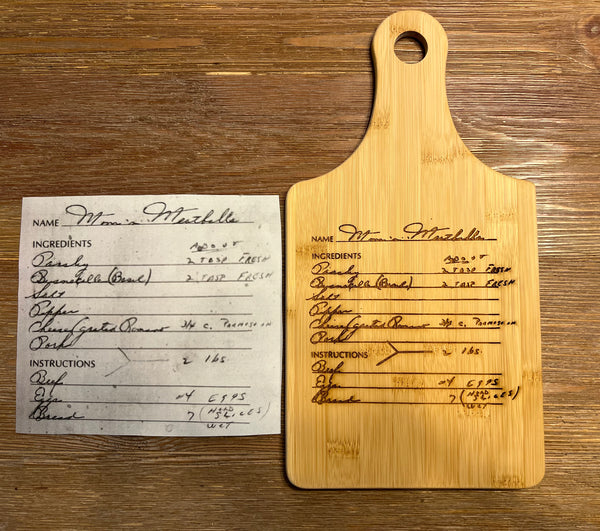 NAME Mom's Meatballs
INGREDIENTS ABOUT
Parsley 2 TBSP FRESH
(Basil) 2 TBSP FRESH
Salt
Pepper
Cheese (grated Romano 3/4 C. PARMESAN
Pork
INSTRUCTIONS 2 lbs.
Beef
Eggs 4 EGGS
Bread 7 (HARD SLICES)
WET
NAME Mom's Meatballs
INGREDIENTS ABOUT
Parsley 2 TBSP FRESH
(Basil) 2 TBSP FRESH
Salt
Pepper
Cheese (grated Romano 3/4 C. PARMESAN
Pork
INSTRUCTIONS 2 lbs.
Beef
Eggs 4 EGGS
Bread 7 (HARD SLICES)
WET